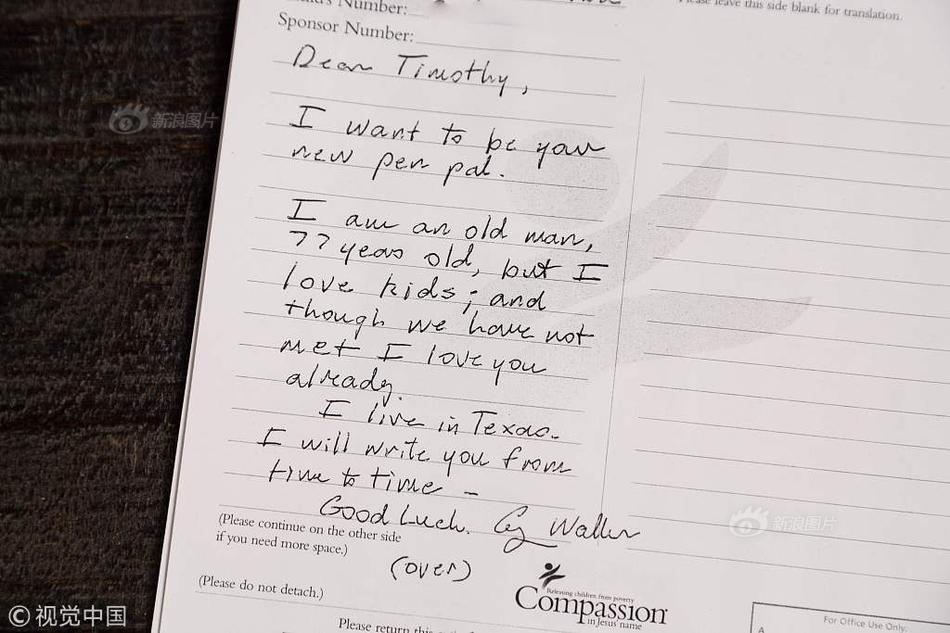 Number:
Please leave this side blank for translation.
Sponsor Number:
Dear Timothy,
I want to be your
new pen pal.
I am an old man,
77 years old, but I
love kids; and
though we have not
met I love you
already.
I live in Texas.
I will write you from
time to time –
Good Luck. G Walker
(Please continue on the other side
if you need more space.)
(over)
(Please do not detach.)
Releasing children from poverty
Compassion
in Jesus' name
Please return this
For Office Use Only:
A
新浪图片
新浪图片
© 视觉中国